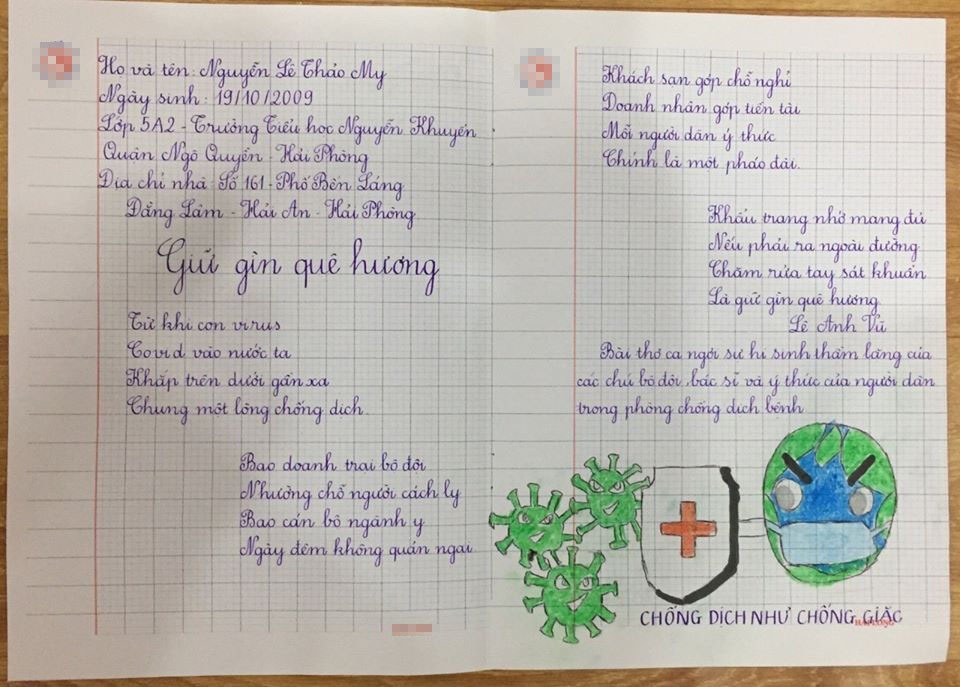 Họ và tên: Nguyễn Lê Thảo My
Ngày sinh: 19/10/2009
Lớp 5A2 - Trường Tiểu học Nguyễn Khuyến
Quận Ngô Quyền - Hải Phòng
Địa chỉ nhà: Số 161 - Phố Bến Láng
Đằng Lâm - Hải An - Hải Phòng
Giữ gìn quê hương
Từ khi con virus
Covid vào nước ta
Khắp trên dưới gần xa
Chung một lòng chống dịch.
Bao doanh trại bộ đội
Nhường chỗ người cách ly
Bao cán bộ ngành y
Ngày đêm không quản ngại
Khách sạn góp chỗ nghỉ
Doanh nhân góp tiền tài
Mỗi người dân ý thức
Chính là một pháo đài.
Khẩu trang nhớ mang đủ
Nếu phải ra ngoài đường
Chăm rửa tay sát khuẩn
Là giữ gìn quê hương.
Lê Anh Vũ
Bài thơ ca ngợi sự hi sinh thầm lặng của
các chú bộ đội, bác sĩ và ý thức của người dân
trong phòng chống dịch bệnh
CHỐNG DỊCH NHƯ CHỐNG GIẶC